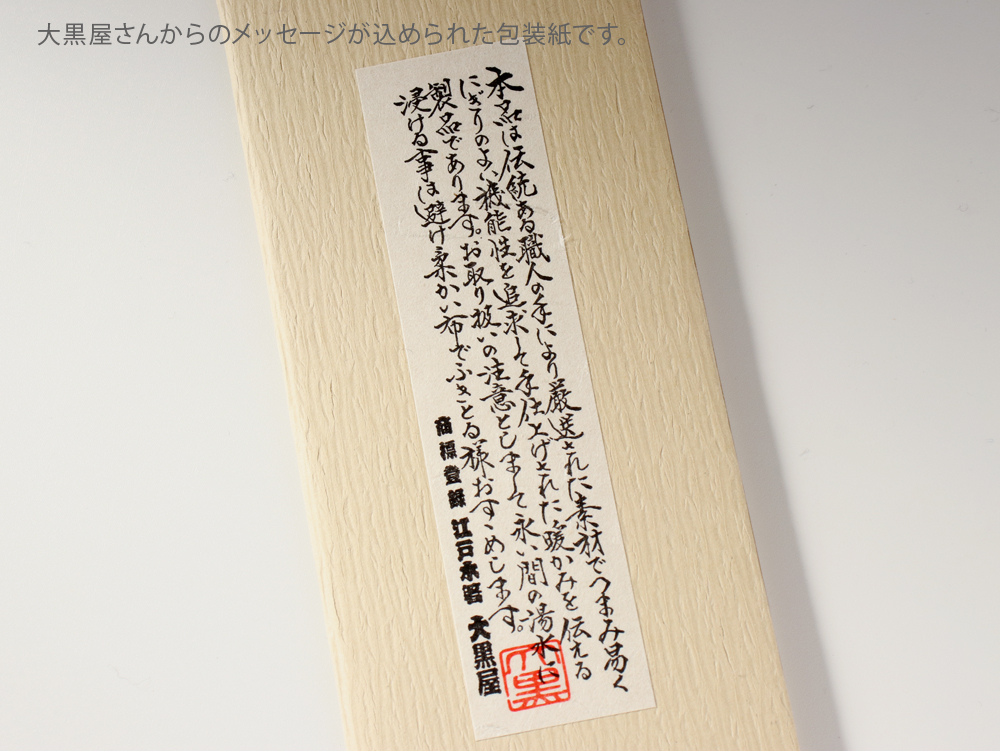 大黒屋さんからのメッセージが込められた包装紙です。
本品は伝統ある職人の手により厳選された素材でつまみ易く
にぎりのよい機能性を追求して手仕上げされた暖かみを伝える
製品であります。お取り扱いの注意としまして永い間の湯水に
浸ける事は避け柔かい布でふきとる様おすゝめします。
商標登録 江戸木箸 大黒屋
大黒